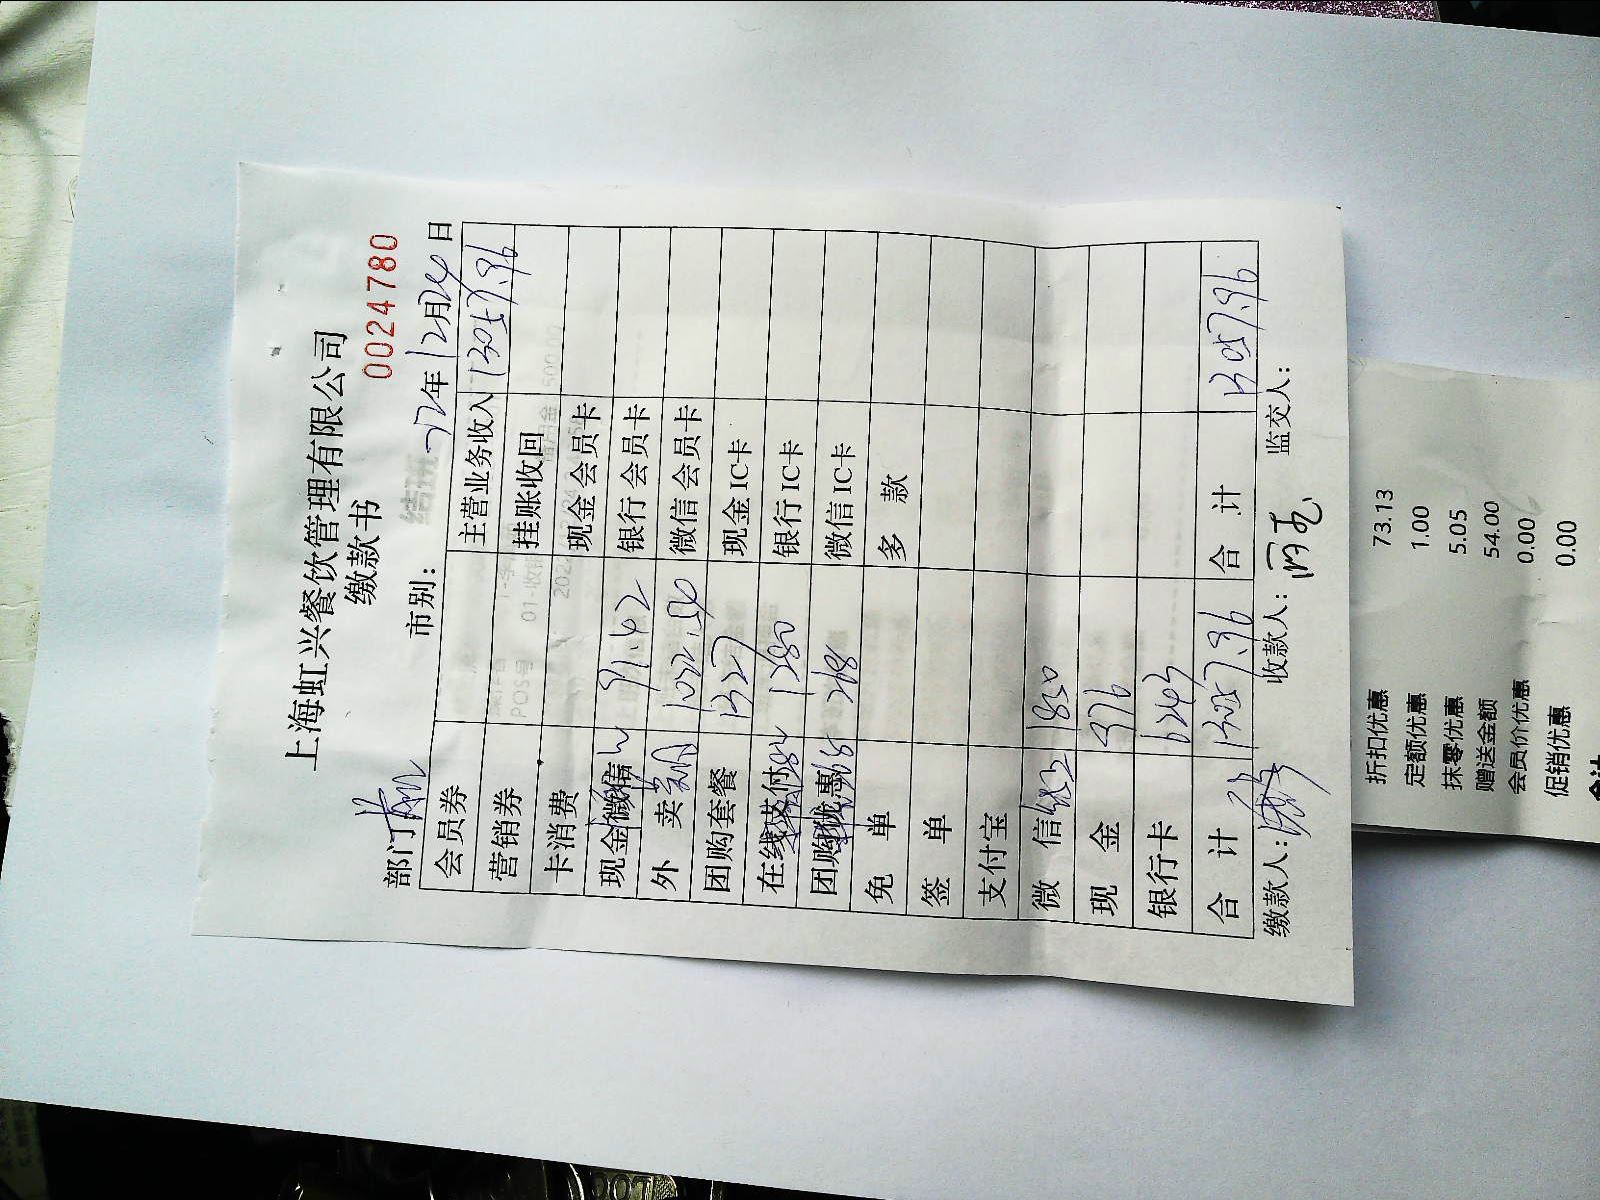 上海虹兴餐饮管理有限公司
缴款书
0024780
部门
市别:
22年12月24日
会员券 主营业务收入 13057.96
营销券 挂账收回
卡消费 现金会员卡
现金微信 91.42 银行会员卡
外卖 1022.54 微信会员卡
团购套餐 1327 现金IC卡
在线支付 1280 银行IC卡
团购优惠 268 微信IC卡
免单 多款
签单
支付宝
微信 1850
现金 976
银行卡 6243
合计 13057.96 合计 13057.96
缴款人: 收款人: 监交人:
折扣优惠 73.13
定额优惠 1.00
抹零优惠 5.05
赠送金额 54.00
会员价优惠 0.00
促销优惠 0.00